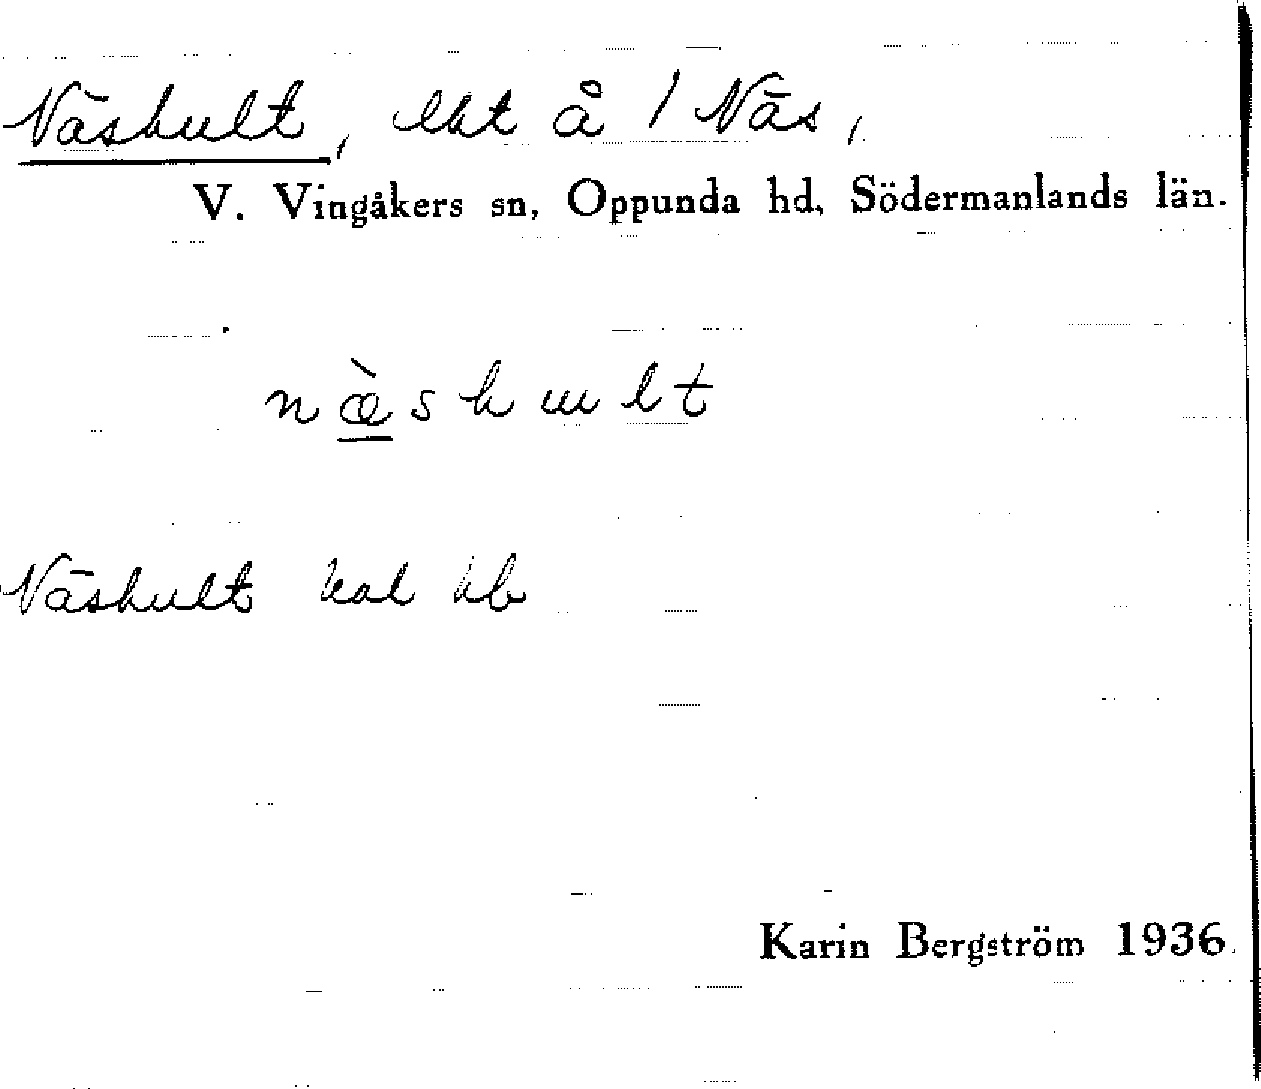 Näshult, lht å 1 Näs,
V. Vingåkers sn, Oppunda hd, Södermanlands län.
næ̀shult
Näshult hb
Karin Bergström 1936.